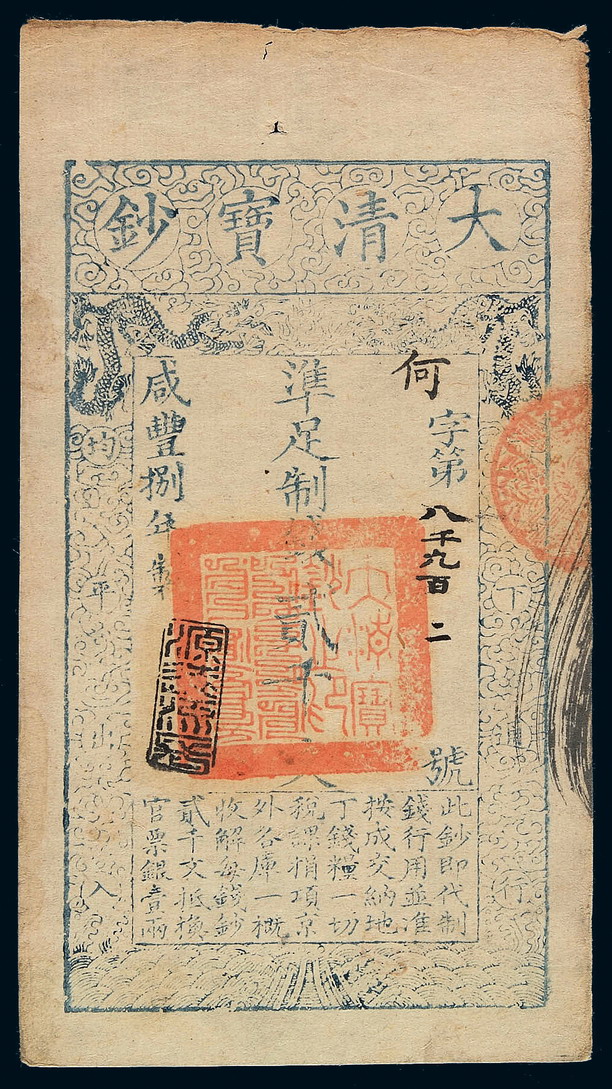 大清寶鈔
何字第八千九百二號
準足制錢貳千文
咸豐捌年製
天下通行
均平出入
此鈔即代制
錢行用並准
按成交納地
丁錢糧一切
稅課捐項京
外各庫一概
收解每錢鈔
貳千文抵換
官票銀壹兩
大清寶
鈔之印